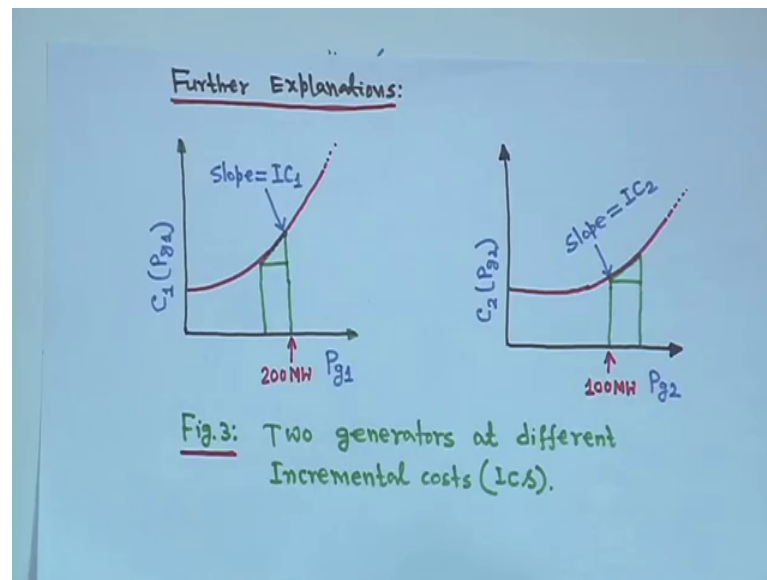 Further Explanations:
Slope = IC1
C1 (Pg1)
200MW
Pg1
Slope = IC2
C2 (Pg2)
100MW
Pg2
Fig.3: Two generators at different
Incremental costs (ICs).